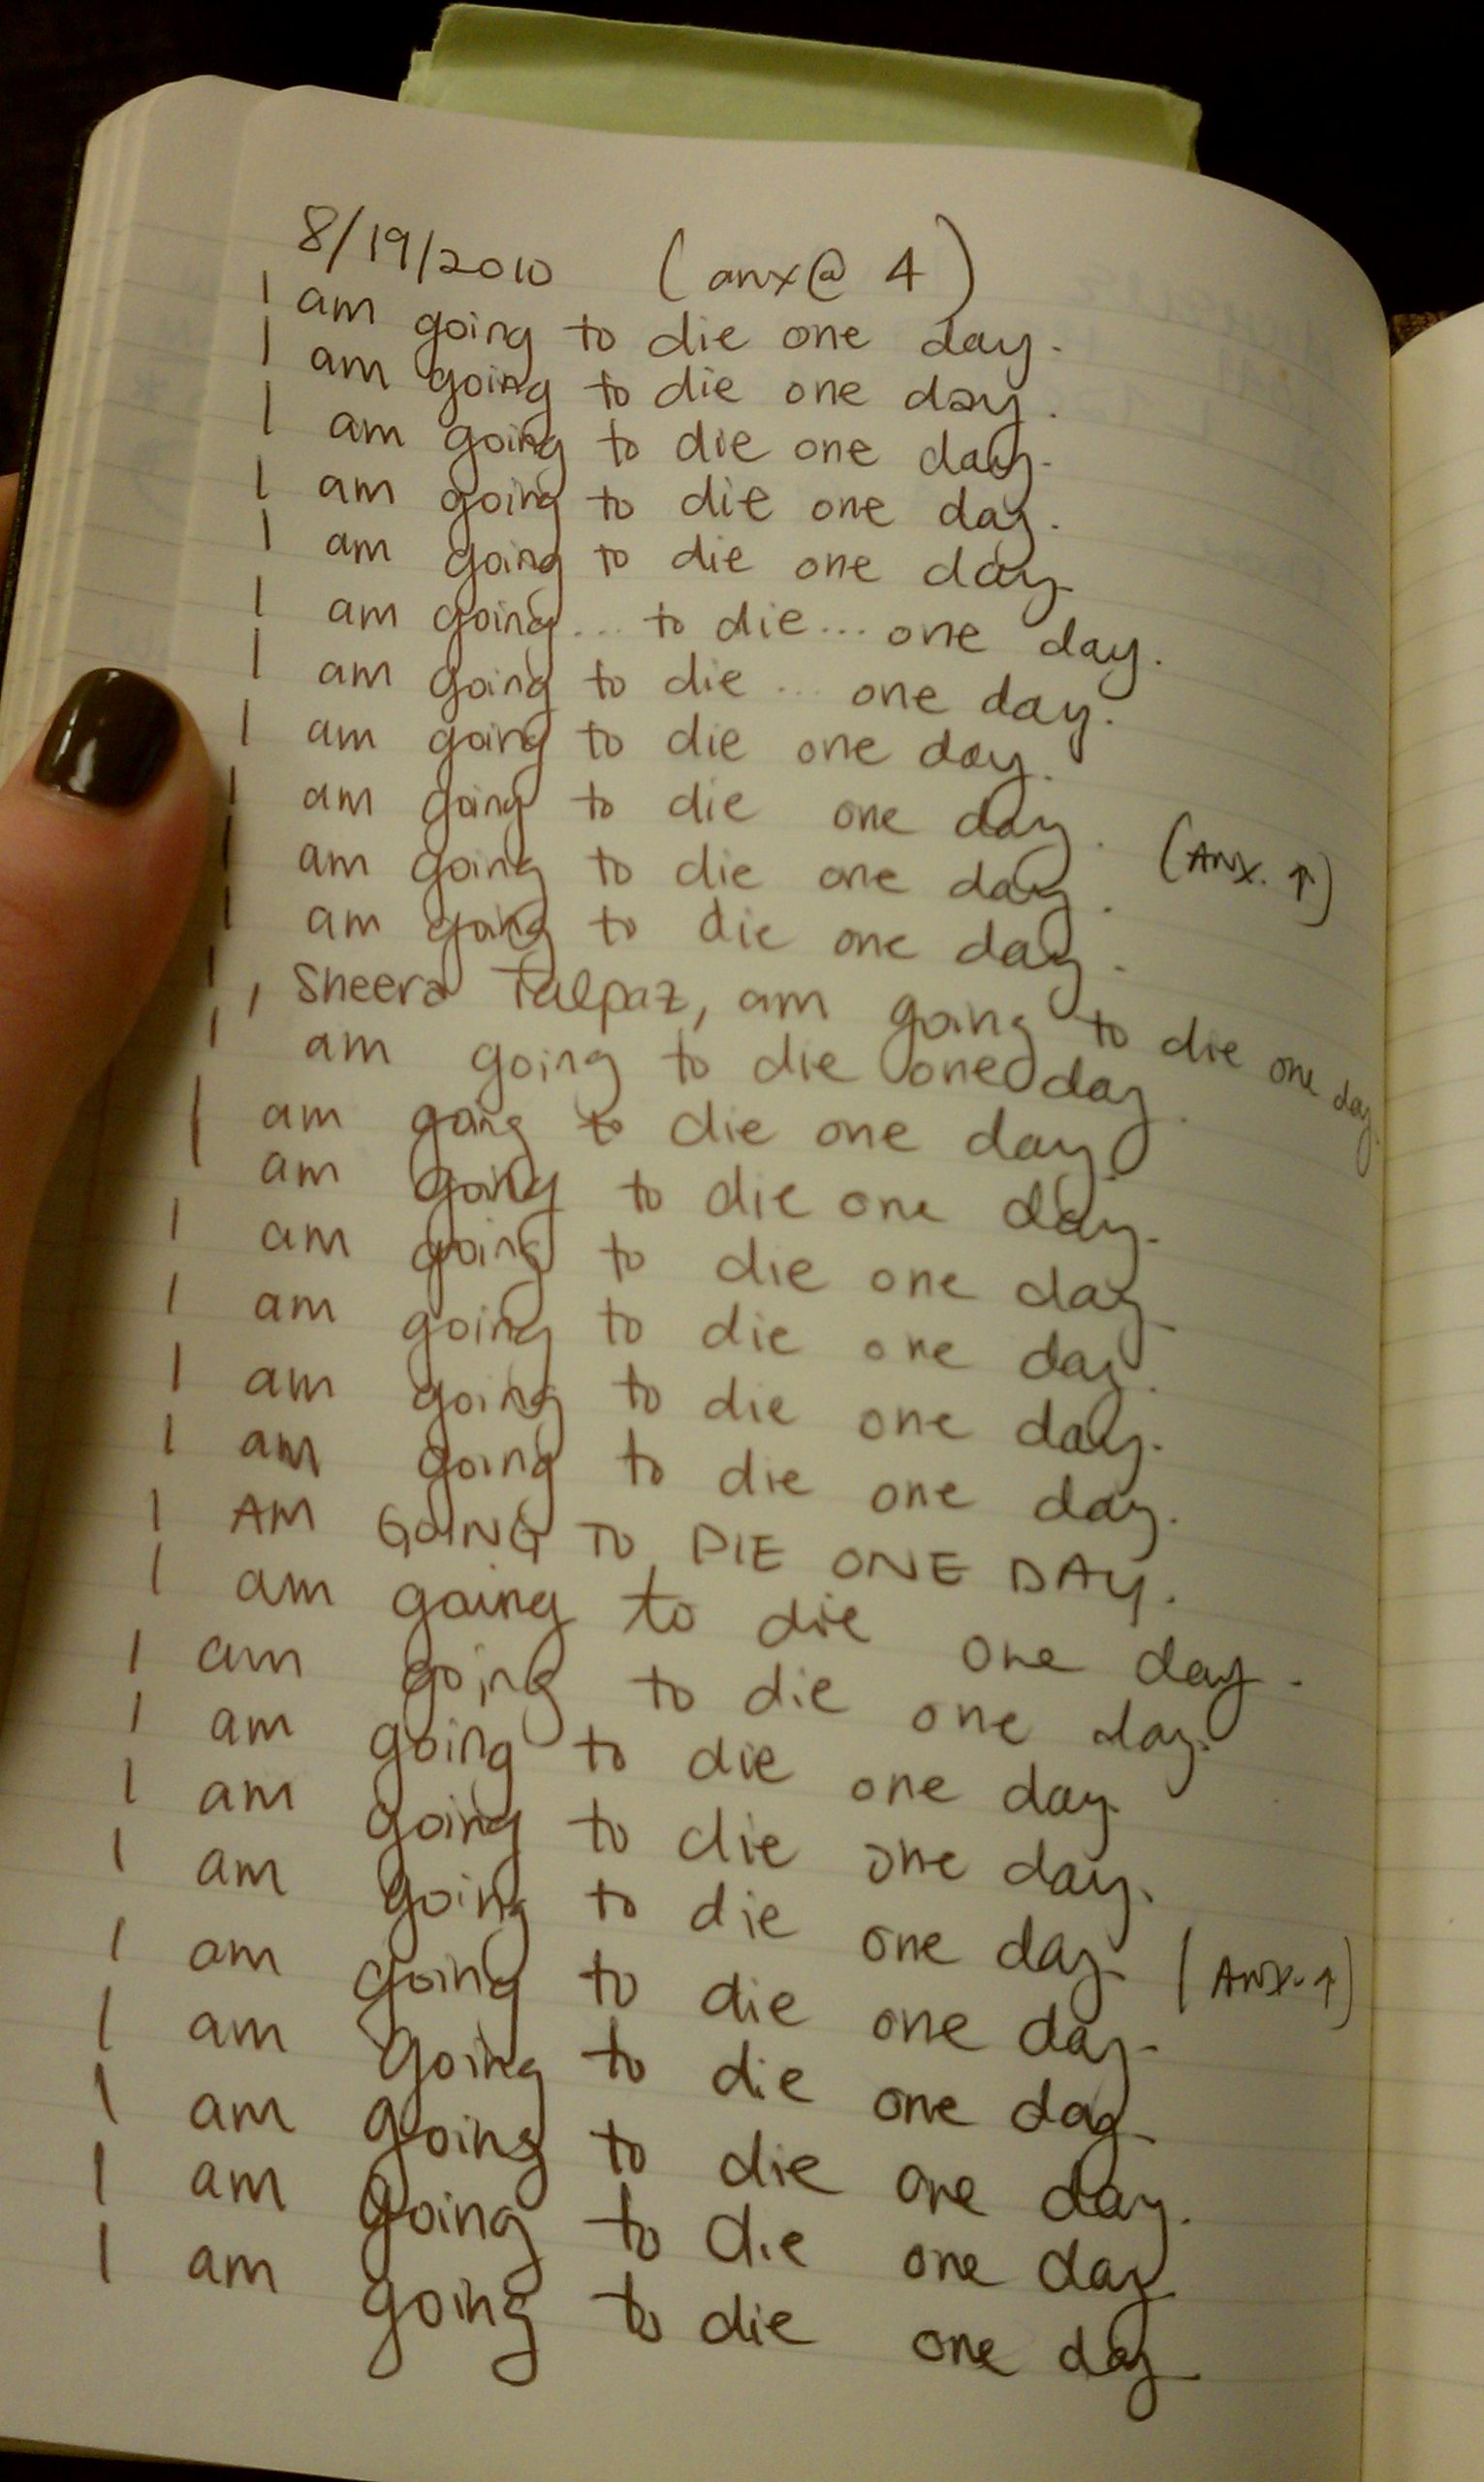 8/19/2010 (anx@ 4)
I am going to die one day.
I am going to die one day.
I am going to die one day.
I am going to die one day.
I am going to die one day.
I am going... to die... one day.
I am going to die... one day.
I am going to die one day.
I am going to die one day. (ANX. ↑)
I am going to die one day.
I am going to die one day.
I, Sheera Talpaz, am going to die one day.
I am going to die one day.
I am going to die one day.
I am going to die one day.
I am going to die one day.
I am going to die one day.
I am going to die one day.
I am going to die one day.
I AM GOING TO DIE ONE DAY.
I am going to die one day.
I am going to die one day.
I am going to die one day.
I am going to die one day.
I am going to die one day. (ANX. ↑)
I am going to die one day.
I am going to die one day.
I am going to die one day.
I am going to die one day.
I am going to die one day.